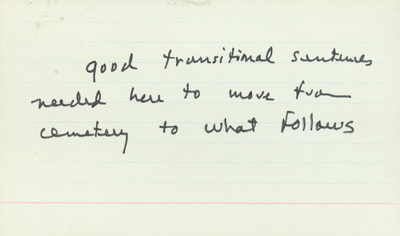 good transitional sentences
needed here to move from
cemetery to what follows